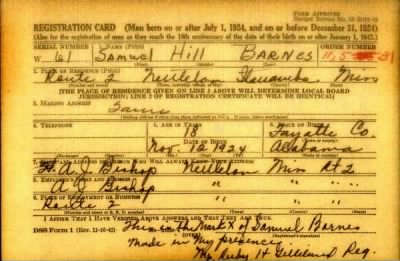 FORM APPROVED
REGISTRATION CARD (Men born on or after July 1, 1924, and on or before December 31, 1924)
(Also for the registration of men as they reach the 18th anniversary of the date of their birth on or after January 1, 1943.)
SERIAL NUMBER 1. NAME (Print) ORDER NUMBER
W 61 Samuel Hill BARNES
2. PLACE OF RESIDENCE (Print)
Route 2 Nettleton Itawamba Miss
(THE PLACE OF RESIDENCE GIVEN ON LINE 2 ABOVE WILL DETERMINE LOCAL BOARD
JURISDICTION; LINE 2 OF REGISTRATION CERTIFICATE WILL BE IDENTICAL)
3. MAILING ADDRESS
Same
4. TELEPHONE 5. AGE IN YEARS 6. PLACE OF BIRTH
18 Fayatte Co.
DATE OF BIRTH
Nov. 12 1924 Alabama
A. J. Bishop Nettleton Miss Rt 2
8. EMPLOYER'S NAME AND ADDRESS
A J Bishop " " "
9. PLACE OF EMPLOYMENT OR BUSINESS
Route 2 " " "
I AFFIRM THAT I HAVE VERIFIED ABOVE ANSWERS AND THAT THEY ARE TRUE.
DSS Form 1 This is the Mark X of Samuel Barnes
(over)
Made in My presence
Mrs Ruby H Gilleland Reg.